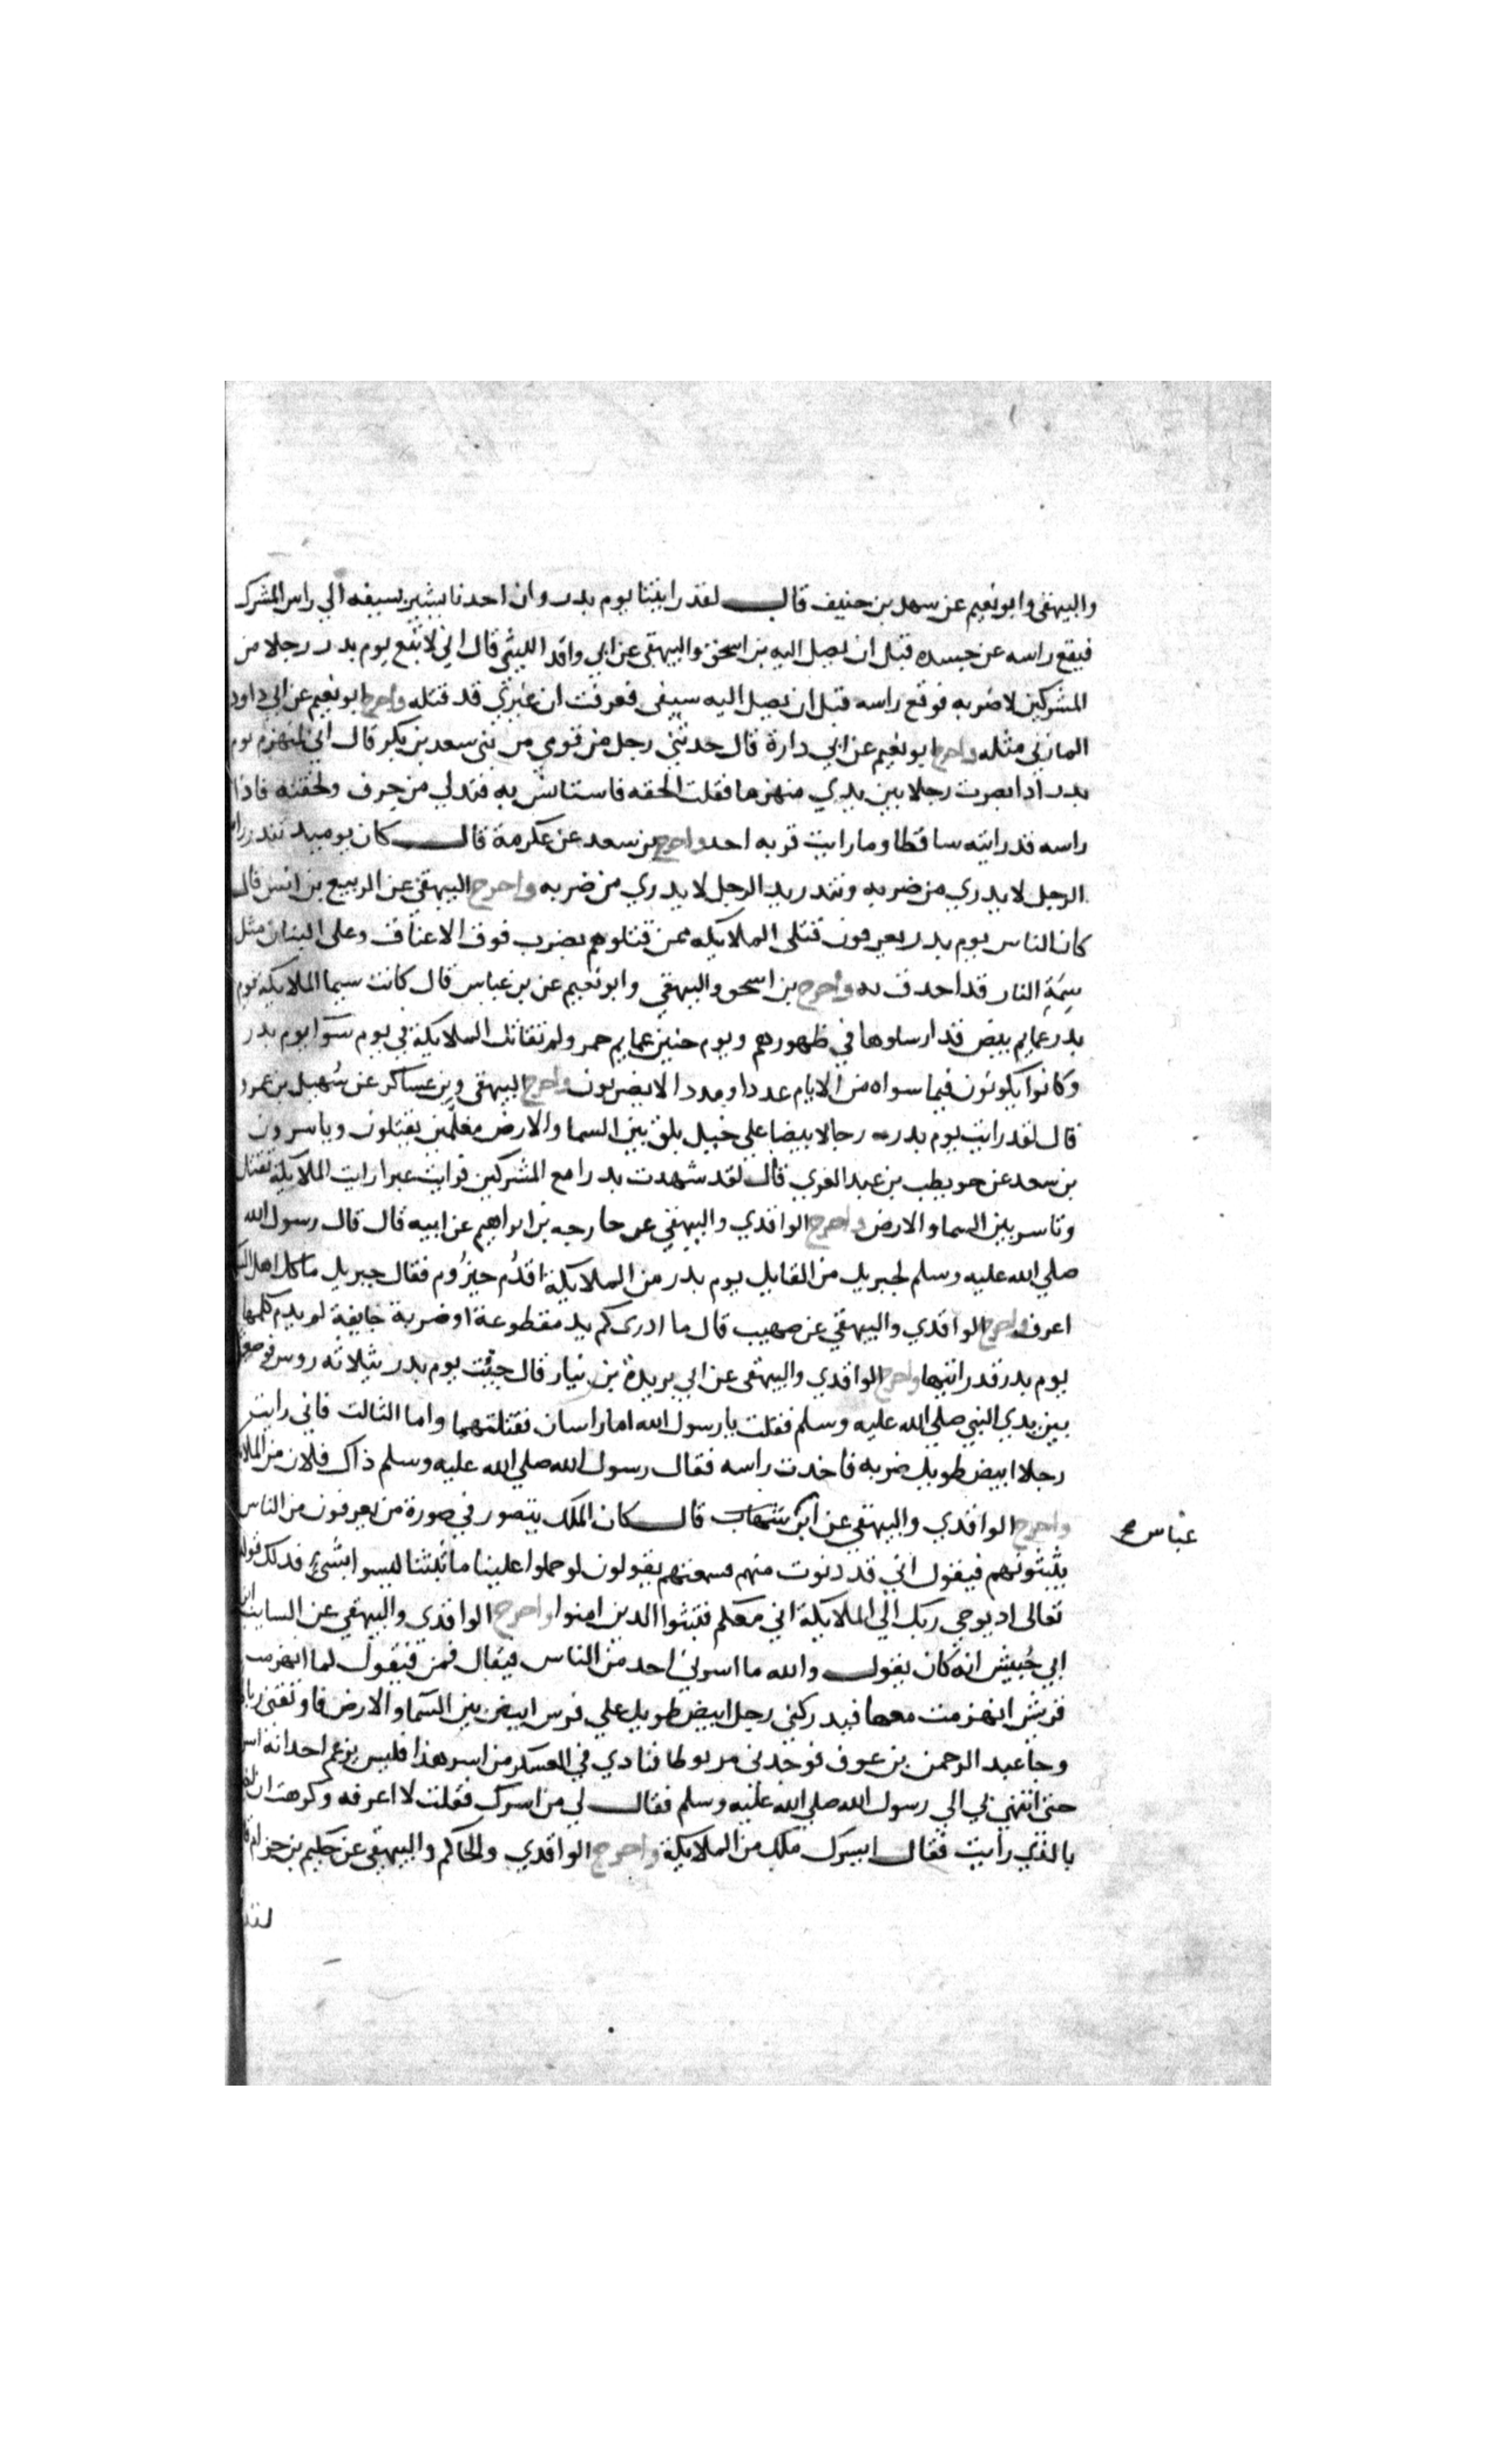 والبيهقي وابو نعيم عن سهل بن حنيف قال لقد رايتنا يوم بدر وان احدنا يشير بسيفه الي راس المشرك
فيقع راسه عن جسده قبل ان يصل اليه بن اسحق والبيهقي عن ابي واقد الليثي قال اني لاتبع يوم بدر رجلا من
المشركين لاضربه فوقع راسه قبل ان يصل اليه سيفي فعرفت ان غيري قد قتله واخرج ابو نعيم عن ابي داود
المازني مثله واخرج ابو نعيم عن ابي دارة قال حدثني رجل من قومي من بني سعد بن بكر قال اني لمنهزم يوم
بدر اذ ابصرت رجلا بين يدي منهزما فقلت الحقه فاستانس به فتدلي من جرف ولحقته فاذا
راسه قد رايته ساقطا وما رايت قربه احد واخرج بن سعد عن عكرمة قال كان يوميد تندر راس
الرجل لا يدري من ضربه وتندر يد الرجل لا يدري من ضربه واخرج البيهقي عن الربيع بن انس قال
كان الناس يوم بدر يعرفون قتلي الملايكه ممن قتلوهم بضرب فوق الاعناق وعلى البنان مثل
سمة النار قد احدق به واخرج بن اسحق والبيهقي وابو نعيم عن بن عباس قال كانت سيما الملايكة يوم
بدر عمايم بيض قد ارسلوها في ظهورهم ويوم حنين عمايم حمر ولم تقاتل الملايكة في يوم سوا يوم بدر
وكانوا يكونون فيما سواه من الايام عددا ومددا لا يضربون واخرج البيهقي وبن عساكر عن سهيل بن عمرو
قال لقد رايت يوم بدر رجالا بيضا علي خيل بلق بين السما والارض معلمين يقتلون وياسرون
بن سعد عن حويطب بن عبد العزي قال لقد شهدت بدرا مع المشركين فرايت عبرا رايت الملايكة تقتل
وتاسر بين السما والارض واخرج الواقدي والبيهقي عن خارجه بن ابراهيم عن ابيه قال قال رسول الله
صلي الله عليه وسلم لجبريل من القايل يوم بدر من الملايكة اقدم حيزوم فقال جبريل ما كل اهل السما
اعرف واخرج الواقدي والبيهقي عن صهيب قال ما ادري كم يد مقطوعة او ضربة جايفة لم يدم كلمها
يوم بدر قد رايتها واخرج الواقدي والبيهقي عن ابي بريدة بن نيار قال جيت يوم بدر بثلاثه روس فوضعتها
بين يدي النبي صلي الله عليه وسلم فقلت يا رسول الله اما راسان فقتلتهما واما الثالث فاني رايت
رجلا ابيض طويل ضربه فاخدت راسه فقال رسول الله صلي الله عليه وسلم ذاك فلان من الملايكة
واخرج الواقدي والبيهقي عن ابن شهاب قال كان الملك يتصور في صورة من يعرفون من الناس
عباس صح
يثبتونهم فيقول اني قد دنوت منهم فسمعتهم يقولون لو حملوا علينا ما ثبتنا ليسوا بشيء فدلك قوله
تعالى اد يوحي ربك الي الملايكة اني معكم فثبتوا الدين امنوا واخرج الواقدي والبيهقي عن السايب ابن
ابي حبيش انه كان يقول والله ما اسرني احد من الناس فيقال فمن فيقول لما انهزمت
قريش انهزمت معها فيدركني رجل ابيض طويل علي فرس ابيض بين السما والارض فاوثقني رباطا
وجا عبد الرحمن بن عوف فوجدني مربوطا فنادي في العسكر من اسر هذا فليس يزعم احد انه اسرني
حتي انتهي بي الي رسول الله صلي الله عليه وسلم فقال لي من اسرك فقلت لا اعرفه وكرهت ان اخبره
بالذي رايت فقال اسرك ملك من الملايكة واخرج الواقدي والحاكم والبيهقي عن حكيم بن حزام قال
لقد